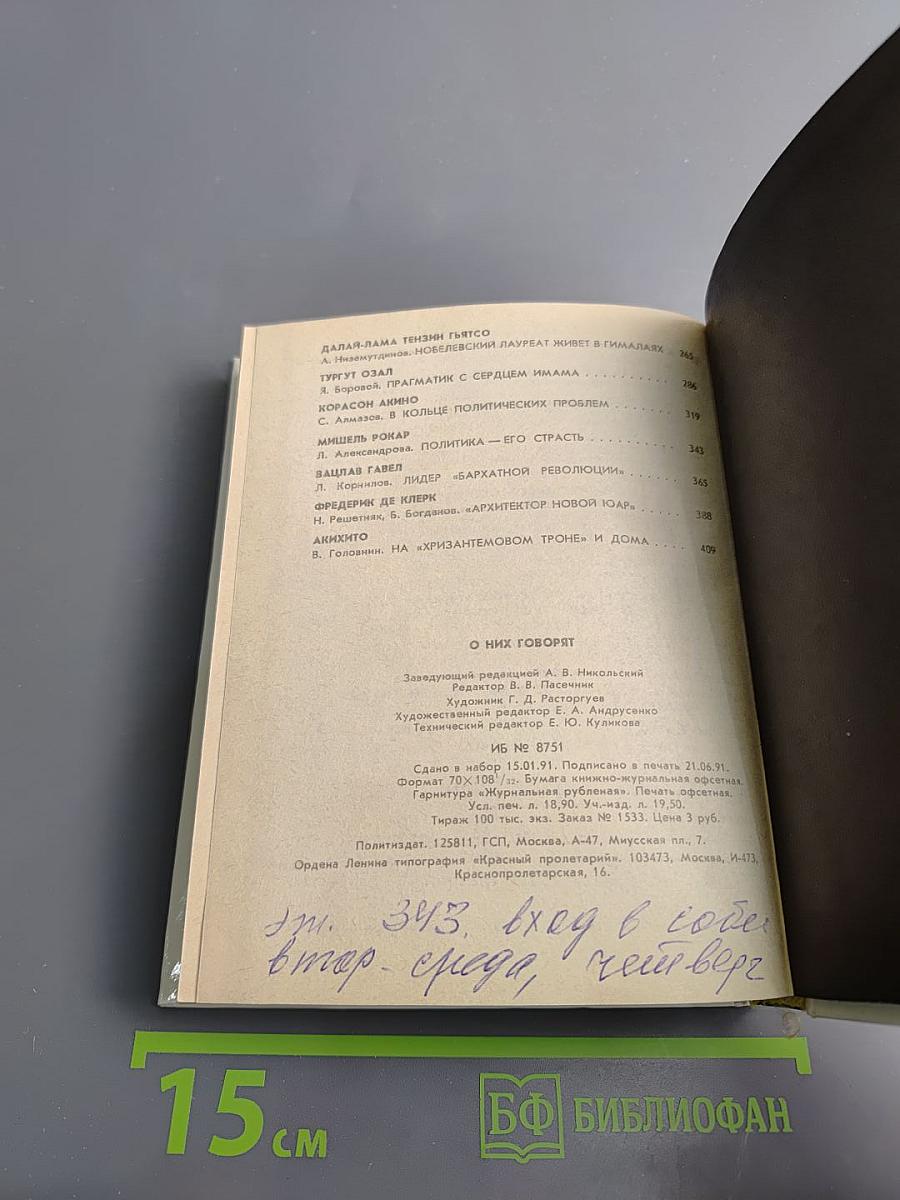 ДАЛАЙ-ЛАМА ТЕНЗИН ГЬЯТСО
А. Низямутдинов. НОБЕЛЕВСКИЙ ЛАУРЕАТ ЖИВЕТ В ГИМАЛАЯХ . 265
ТУРГУТ ОЗАЛ
Я. Боровой. ПРАГМАТИК С СЕРДЦЕМ ИМАМА . . . . . . . . . 286
КОРАСОН АКИНО
С. Алмазов. В КОЛЬЦЕ ПОЛИТИЧЕСКИХ ПРОБЛЕМ . . . . . . . 319
МИШЕЛЬ РОКАР
Л. Александрова. ПОЛИТИКА — ЕГО СТРАСТЬ . . . . . . . . 343
ВАЦЛАВ ГАВЕЛ
Л. Корнилов. ЛИДЕР «БАРХАТНОЙ РЕВОЛЮЦИИ» . . . . . . 365
ФРЕДЕРИК ДЕ КЛЕРК
Н. Решетняк, Б. Богданов. «АРХИТЕКТОР НОВОЙ ЮАР» . . . . . 388
АКИХИТО
В. Головнин. НА «ХРИЗАНТЕМОВОМ ТРОНЕ» И ДОМА . . . . 409
О НИХ ГОВОРЯТ
Заведующий редакцией А. В. Никольский
Редактор В. В. Пасечник
Художник Г. Д. Расторгуев
Художественный редактор Е. А. Андрусенко
Технический редактор Е. Ю. Куликова
ИБ № 8751
Сдано в набор 15.01.91. Подписано в печать 21.06.91.
Формат 70×108 1/32. Бумага книжно-журнальная офсетная.
Гарнитура «Журнальная рубленая». Печать офсетная.
Усл. печ. л. 18,90. Уч.-изд. л. 19,50.
Тираж 100 тыс. экз. Заказ № 1533. Цена 3 руб.
Политиздат. 125811, ГСП, Москва, А-47, Миусская пл., 7.
Ордена Ленина типография «Красный пролетарий». 103473, Москва, И-473,
Краснопролетарская, 16.
343. вход в
втор - среда, четверг
15 см
БФ БИБЛИОФАН